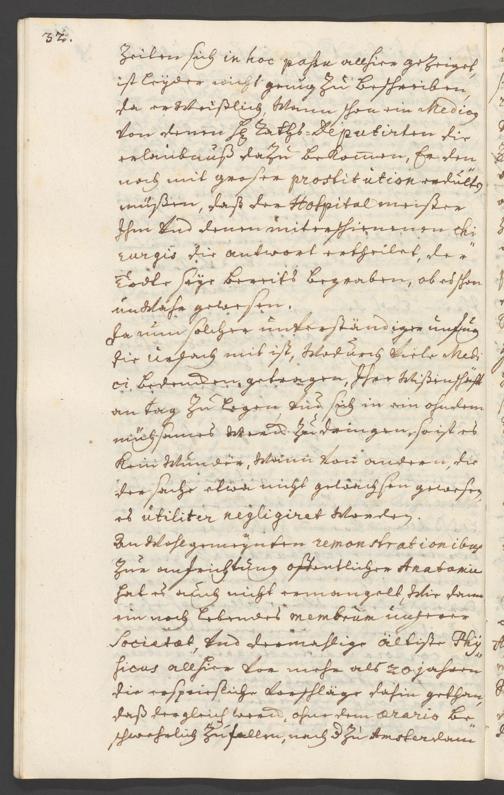 32.
Zeiten sich in hoc passu allhier gezeiget,
ist leyder nicht genug zu beschreiben,
da er weißlich wann schon ein Medicus
von denen HE Raths-Deputirten die
erlaubnuß dazu bekommen, Er den
noch mit großer prostitution erdulten
müßen, daß der Hospital meister
Ihm und denen miterschienenen chi
rurgis die antwort ertheilet, der
Todte seye bereits begraben, ob es schon
unwahr gewesen.
Da nun solcher unverständiger unfug
die ursach mit ist, wodurch viele Medi
ci bedencken getragen, Ihre Wißenschafft
an tag zu legen und sich in ein ohndem
mühsames werck zu dringen, so ist es
kein wunder, wann von andern, die
der sache etwa nicht gewachsen gewesen,
es utiliter negligiret worden.
An wohlgemeynten remonstrationibus
zur aufrichtung offentlicher Anatomie
hat es auch nicht ermangelt, wie dann
ein noch lebendes membrum unserer
Societät, und dermahlige ältiste Phy
sicus allhier vor mehr als 20 jahren
die ersprießliche vorschläge dahin gethan,
daß dergleich werck, ohne dem ærario be
schwehrlich zu fallen, nach zu Amsterdam